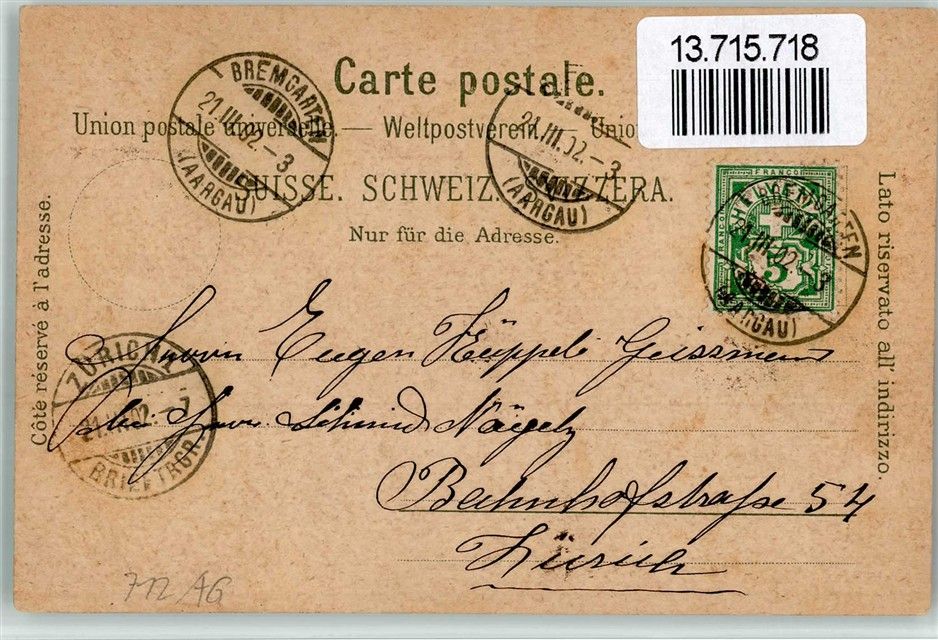 13.715.718
Carte postale.
Union postale universelle. — Weltpostverein. Unio
SUISSE. SCHWEIZ. SVIZZERA.
Nur für die Adresse.
Côté réservé à l'adresse.
Lato riservato all' indirizzo.
BREMGARTEN
21.III.02.-3
(AARGAU)
21.III.02.-3
(AARGAU)
FRANCO
FRANCO
5
21.III.02.-3
(AARGAU)
ZÜRICH 1
21.III.02.-7
BRIEFTRGR.
Herrn Eugen Küppeli
bei Herrn Schmid Nägely
Bahnhofstraße 54
Zürich
712 AG